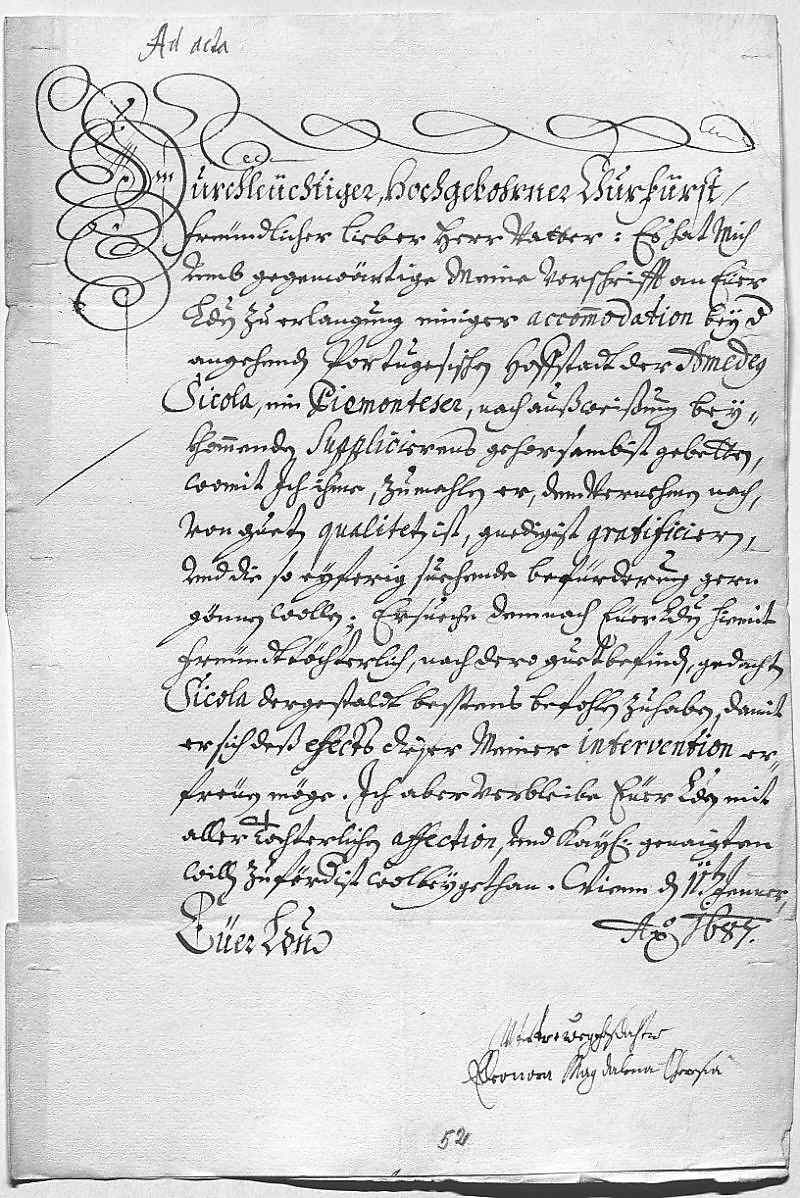 Ad acta
Durchleüchtiger, Hochgebohrner Churfürst,
freündlicher lieber Herr Vatter: Es hat Mich
umb gegenwärtige Meine Vorschrifft an Euer
Lden zu erlangung einiger accommodation bey d
angehendn Portugesischen Hoffstadt der Amedeg
Sicola, ein Piemonteser, nach außweißung bey,,
khommenden Supplicierens gehorsambist gebetten,
womit Ich ihme, zumahlen er, dem Vernehmen nach,
von guetn qualitetn ist, gnedigist gratificiern,
und die so eyferig suechende befürderung gern
gönnen wollen; Ersueche demnach Euer Lden hiemit
freündtöchterlich, nach dero guetbefindn, gedachtn
Sicola dergestaldt besstens befohln zuhaben, damit
er sich deß effects dißer Meiner intervention er,,
freüen möge. Ich aber verbleibe Euer Lden mit
aller tochterlichen affection, und Kayß: genaigten
willn zuforderist wolbeygethan. Wienn dn 11tn Jenner,
Aō 1687.
Eüer Lbd
Eleonora Magdalena Theresia
52